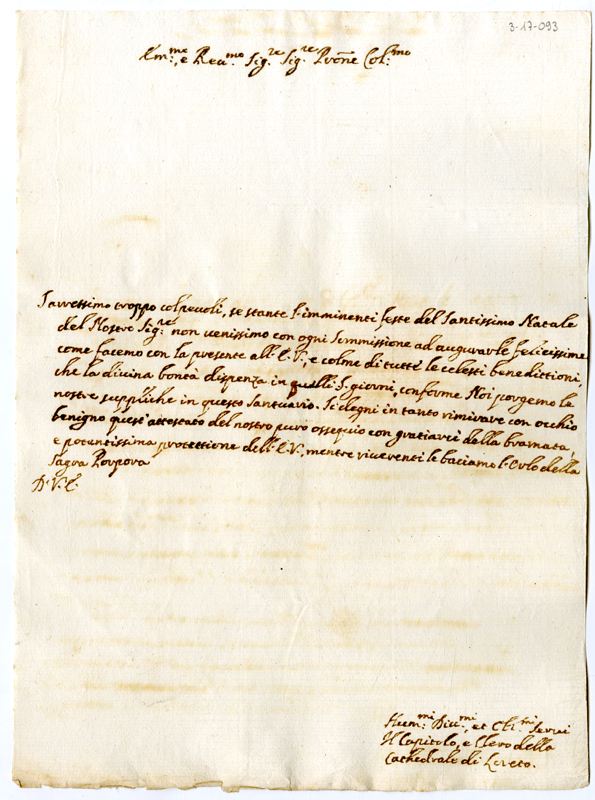 3-17-093
Em:me, e Reu:mo Sig:re Sig:re Prōne Col:mo
Saressimo troppo colpeuoli, se stante l'imminenti feste del Santissimo Natale
del Nostro Sig:re non uenissimo con ogni Sommissione ad augurarle felicissime
come facemo con la presente all'E.V., e colme di tutte le celesti benedittioni,
che la diuina bontà dispenza in quelli S. giorni, conforme Noi porgemo le
nostre suppliche in questo Santuario. Si degni in tanto rimirare con occhio
benigno quest'attestato del nostro puro ossequio con gratiarci della bramata,
e potentissima protettione dell'E.V., mentre riuerenti le baciamo l'Orlo della
Sagra Porpora
D. V. E.
Hum:mi Diu:mi, et Obl:mi Serui
Il Capitolo, e Clero della
Cathedrale di Loreto.